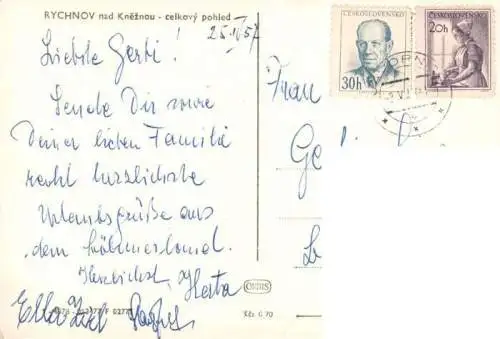 RYCHNOV nad Kněžnou - celkový pohled
Liebste Gerti!
Sende Dir sowie
Deiner lieben Familie
recht herzlichste
Urlaubsgrüße aus
dem Böhmerland.
Herzlichst, Herta
Ella
ČESKOSLOVENSKO
30h
ČESKOSLOVENSKO
20h
Frau
Ge
ORBIS